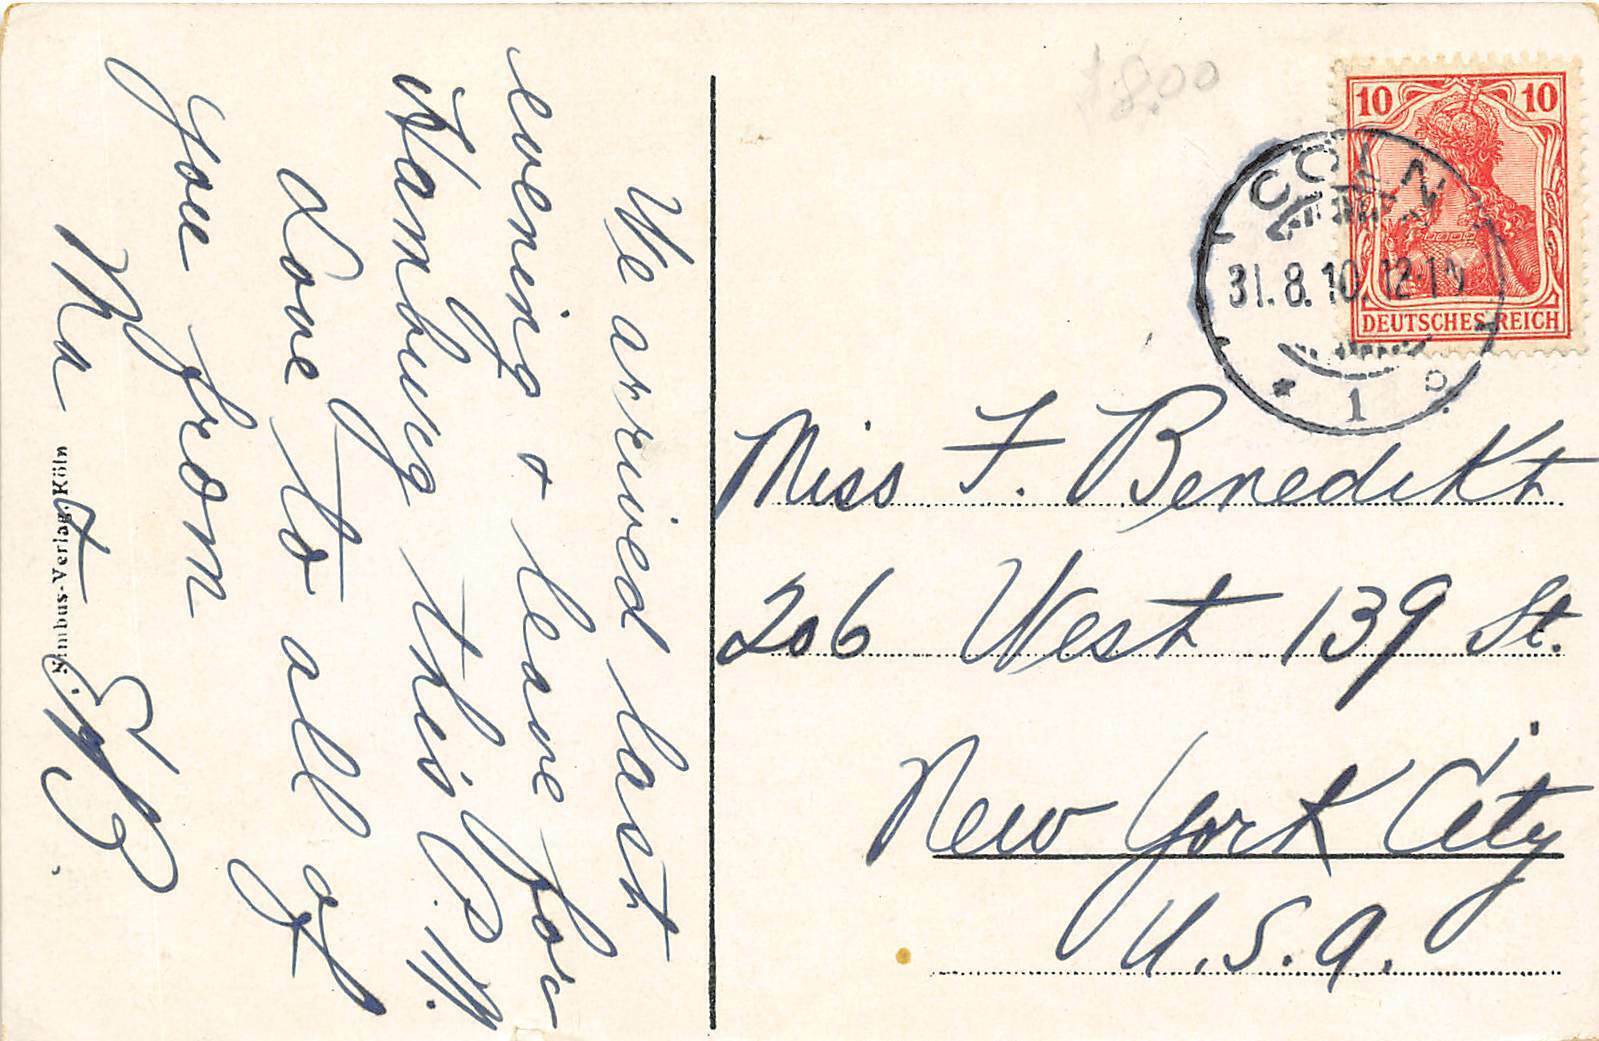 We arrived last
evening + leave for
Hamburg this P.M.
Love to all of
you from
Nat
Nimbus-Verlag, Köln
$8.00
10 10
DEUTSCHES REICH
CÖLN
31.8.10.12-1N
* 1 o
Miss F. Benedikt
206 West 139 St.
New York City
U.S.A.